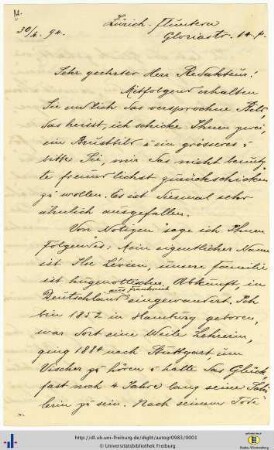 Zürich-Fluntern
30/4. 94. Gloriastr. 64.
Sehr geehrter Herr Redakteur!
Mitfolgend erhalten
Sie endlich das versprochne Bild,
das heisst, ich schicke Ihnen zwei,
ein Brustbild & ein grösseres &
bitte Sie, mir das nicht benütz-
te freundlichst zurückschicken
zu wollen. Es ist diesmal sehr
ähnlich ausgefallen.
Von Notizen sage ich Ihnen
folgendes: Mein eigentlicher Name
ist Ilse Lévien, unsere Familie
ist hugenottischer Abkunft, in
Deutschland aus Frankreich eingewandert. Ich
bin 1852 in Hamburg geboren,
war dort eine Weile Lehrerin,
ging 1884 nach Stuttgart um
Vischer zu hören & hatte das Glück
fast noch 4 Jahre lang seine Schü-
lerin zu sein. Nach seinem Tode
http://dl.ub.uni-freiburg.de/diglit/autogr0583/0001
© Universitätsbibliothek Freiburg